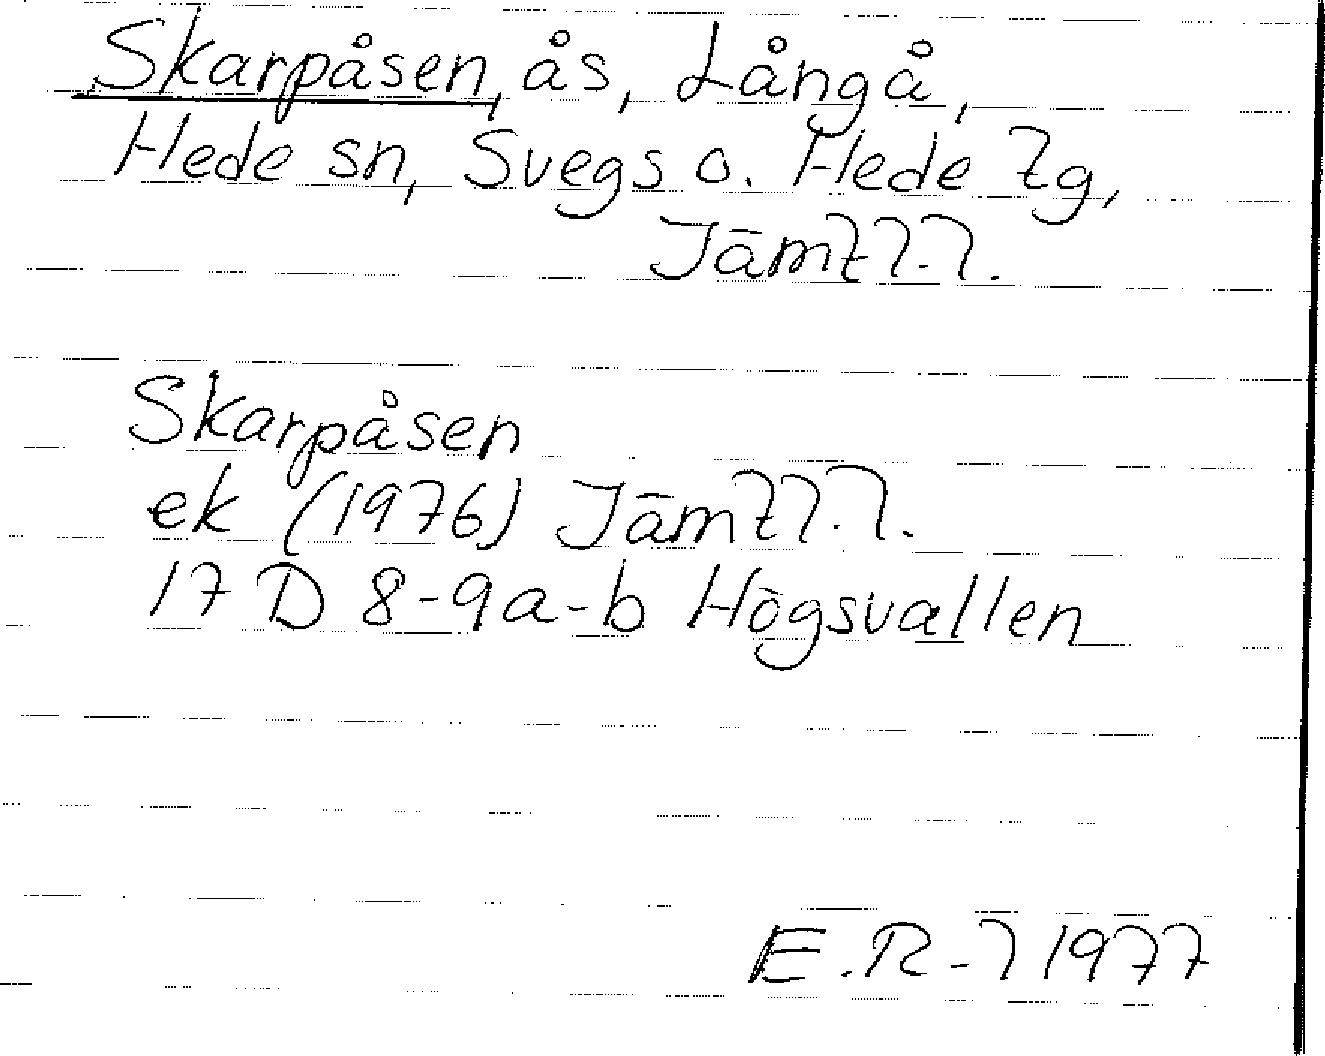 Skarpåsen, ås, Långå,
Hede sn, Svegs o. Hede tg,
Jämtl. l.
Skarpåsen
ek (1976) Jämtl. l.
17 D 8-9a-b Högsvallen
E.R-l 1977